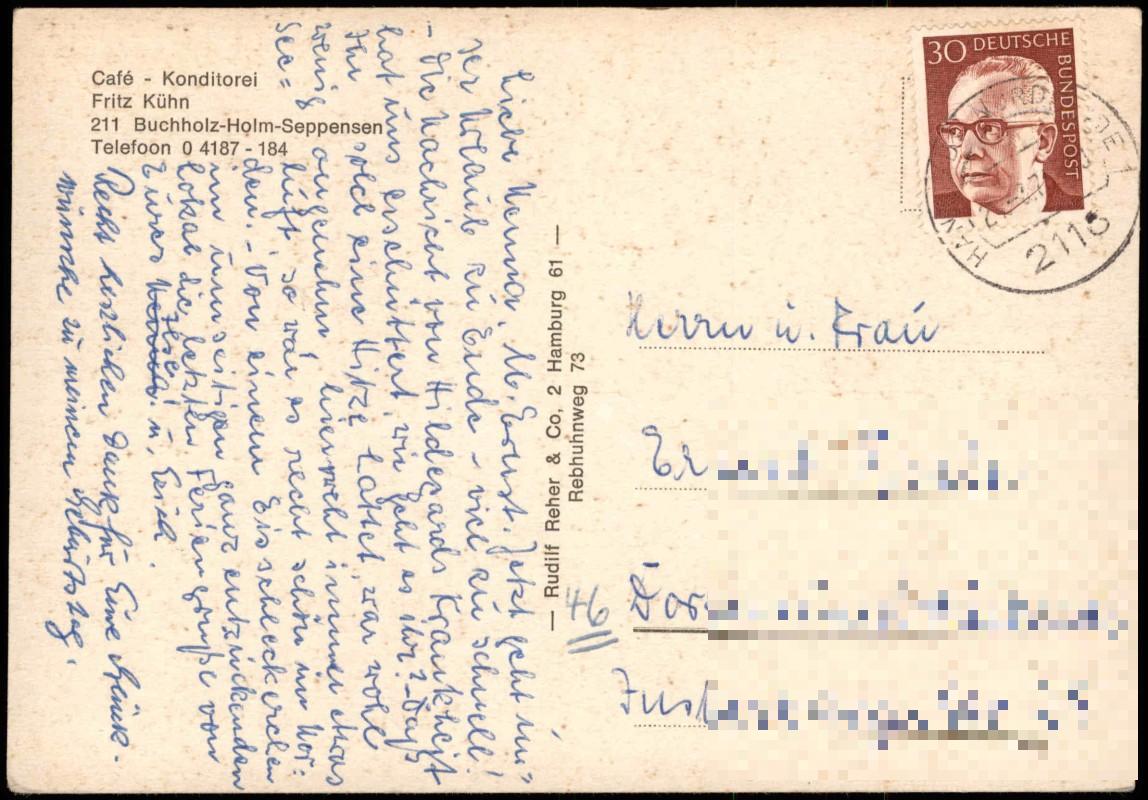 Café - Konditorei
Fritz Kühn
211 Buchholz-Holm-Seppensen
Telefoon 0 4187 - 184
Liebe Henna, lb. Ernst. Jetzt geht un=
ser Urlaub zu Ende - viel zu schnell!
- Die Nachricht von Hildegards Krankheit
hat uns erschüttert, wie geht es ihr? - Daß
Ihr solch eine Hitze hattet, war wohl
wenig angenehm, hier weht immer etwas
See=luft, so war es recht schön im Nor=
den. - Von einem Eisschleckerchen
im umseitigen ganz entzückenden
Lokal die letzten Feriengrüße von
Eurer u. Erich.
Recht herzlichen Dank für Eure
Wünsche zu meinem Geburtstag.
— Rudilf Reher & Co, 2 Hamburg 61 —
Rebhuhnweg 73
30 DEUTSCHE
BUNDESPOST
2115
Herrn u. Frau
46